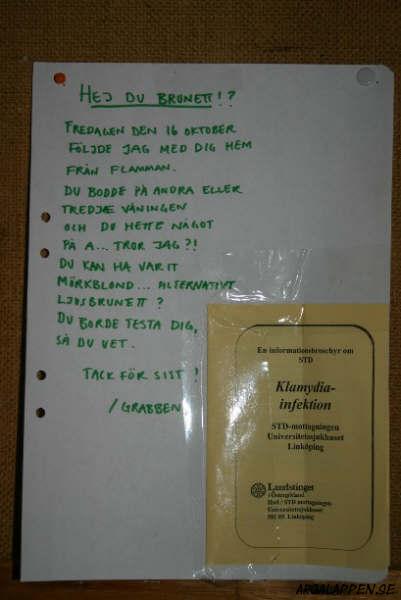 HEJ DU BRUNETT!?
FREDAGEN DEN 16 OKTOBER
FÖLJDE JAG MED DIG HEM
FRÅN FLAMMAN.
DU BODDE PÅ ANDRA ELLER
TREDJE VÅNINGEN
OCH DU HETTE NÅGOT
PÅ A... TROR JAG?!
DU KAN HA VARIT
MÖRKBLOND... ALTERNATIVT
LJUSBRUNETT?
DU BORDE TESTA DIG,
SÅ DU VET.
TACK FÖR SIST!
/GRABBEN
En informationsbroschyr om
STD
Klamydia-
infektion
STD-mottagningen
Universitetssjukhuset
Linköping
Landstinget
i Östergötland
Hud / STD mottagningen
Universitetssjukhuset
581 85 Linköping
ARGALAPPEN.SE